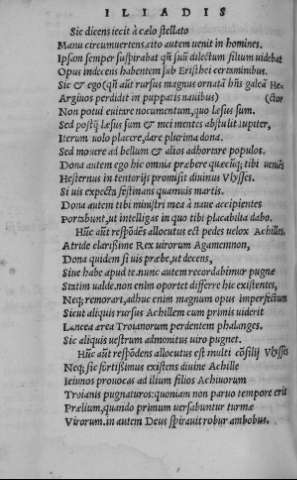 ILIADIS
Sic dicens iecit à cælo stellato
Manu circumuertens.cito autem uenit in homines.
Ipsam semper suspirabat qñ suũ dilectum filium uidebat
Opus indecens habentem sub Eristhei certaminibus.
Sic & ego (qñ aũt rursus magnus ornatã hñs galeã He,
Argiuos perdidit in puppatis nauibus) (ctor
Non potui euitare nocumentum, quo læsus sum.
Sed postq̃ læsus sum & mei mentes abstulit iupiter,
Iterum uolo placere, dare plurima dona.
Sed mouere ad bellum & alios adhortare populos.
Dona autem ego hic omnia præbere quæcũq; tibi uenẽs
Hesternus in tentorijs promisit diuinus Vlysses.
Si uis expecta festinans quamuis martis.
Dona autem tibi ministri mea à naue accipientes
Portabunt, ut intelligas in quo tibi placabilia dabo.
Hũc aũt respõdẽs allocutus est pedes uelox Achilles.
Atride clarissime Rex uirorum Agamemnon,
Dona quidem si uis præbe, ut decens,
Siue habe apud te.nunc autem recordabimur pugnæ
Statim ualde.non enim oportet differre hic existentes,
Neq; remorari, adhuc enim magnum opus imperfectum
Sicut aliquis rursus Achillem cum primis uiderit
Lancea ærea Troianorum perdentem phalanges.
Sic aliquis uestrum admonitus uiro pugnet.
Hũc aũt respõdens allocutus est multi cõsilij Vlysses
Neq; sic fortissimus existens diuine Achille
Ieiunos prouocas ad ilium filios Achiuorum
Troianis pugnaturos: quoniam non paruo tempore erit
Prælium, quando primum uersabuntur turmæ
Virorum.in autem Deus spirauit robur ambobus.